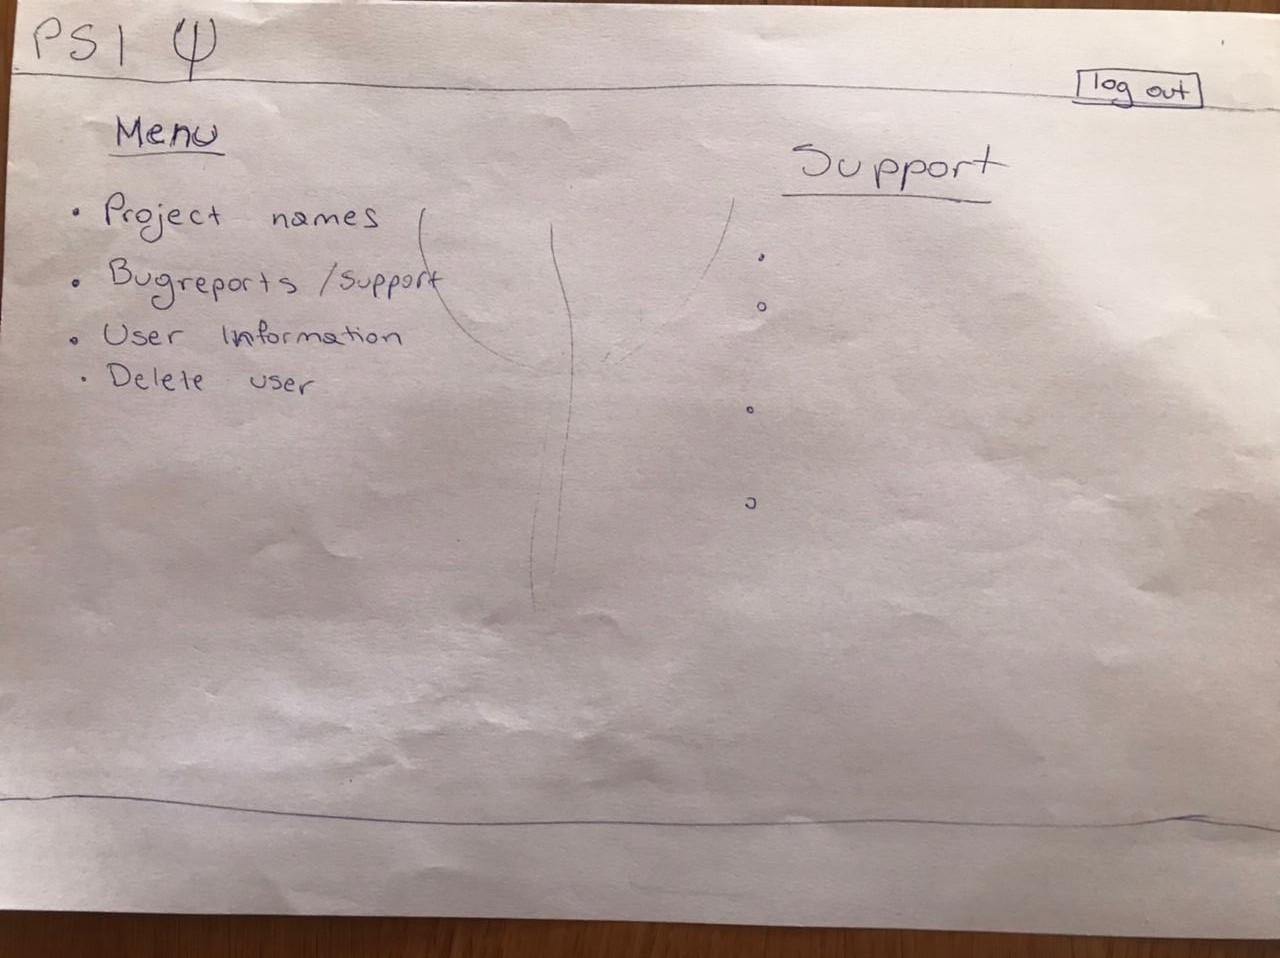 PSI Ψ
log out
Menu
• Project names
• Bugreports /support
• User Information
• Delete user
Support
•
•
•
•